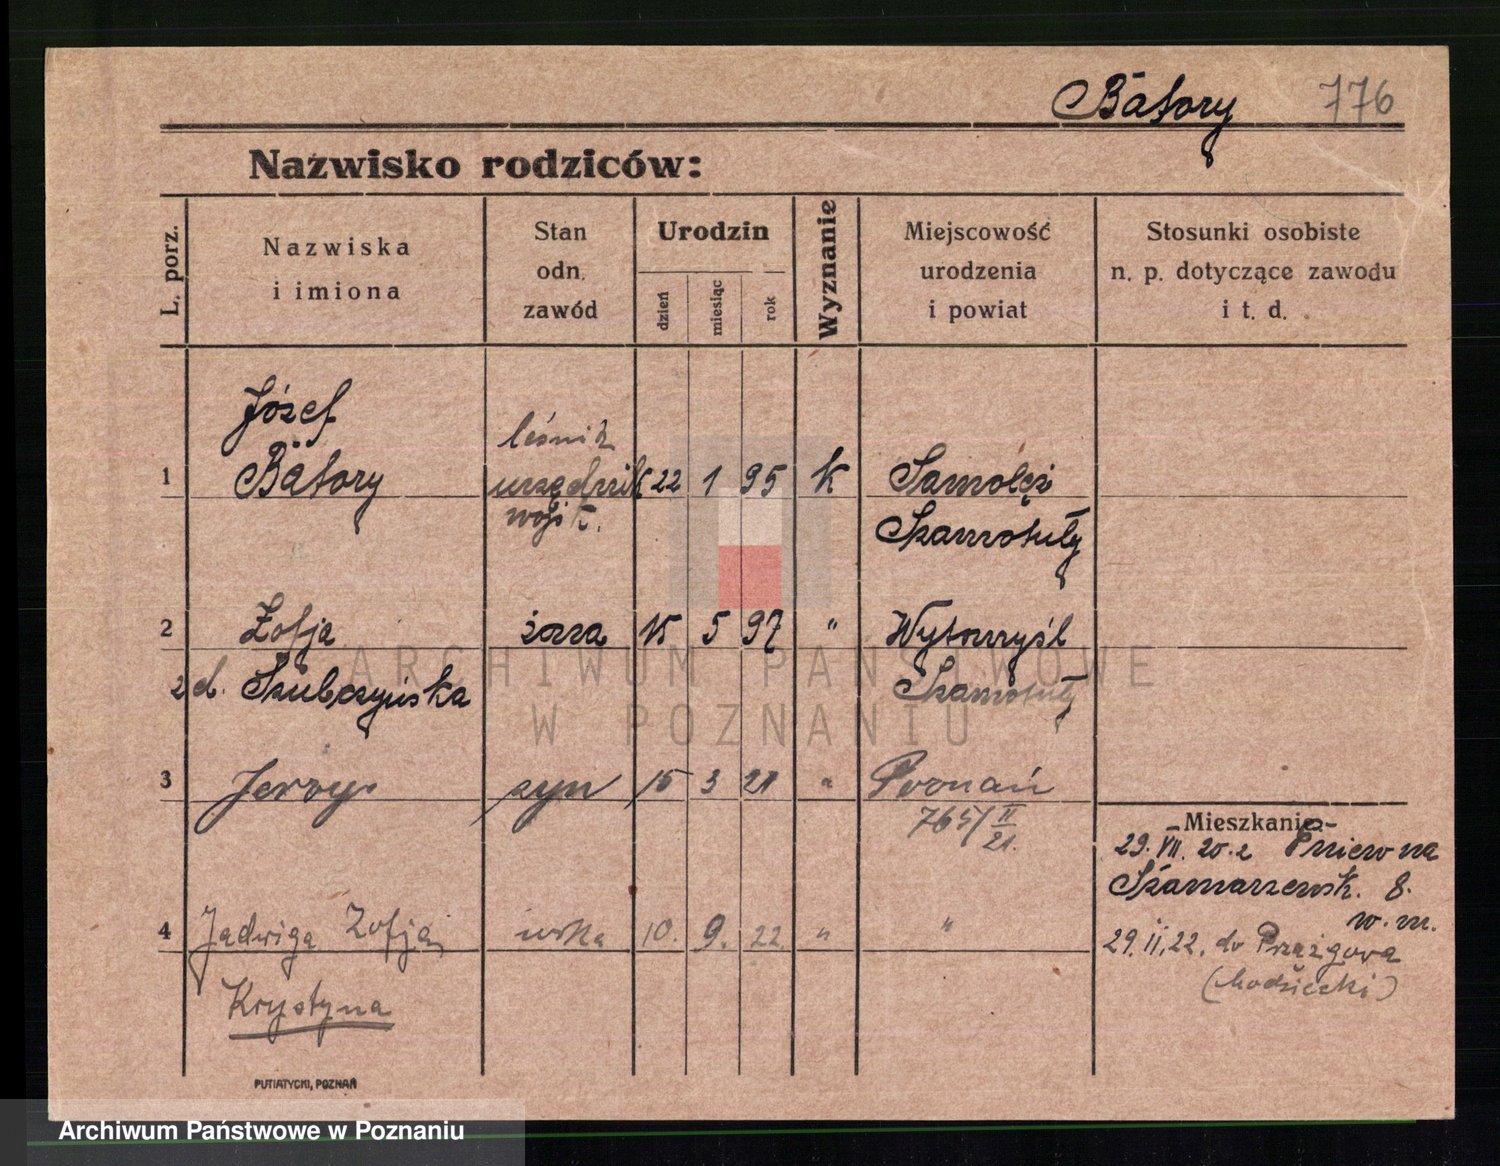 Bátory 776
Nazwisko rodziców:
L. porz.
Nazwiska
i imiona
Stan
odn.
zawód
Urodzin
dzień
miesiąc
rok
Wyznanie
Miejscowość
urodzenia
i powiat
Stosunki osobiste
n. p. dotyczące zawodu
i t. d.
Józef
leśnik
1 Bátory urzędnik 22 1 95 k Samołęż
wojsk. Szamotuły
2 Zofja żona 15 5 97 " Wytomyśl
z d. Szubczyńska Szamotuły
3 Jerzy syn 15 3 21 " Poznań
765/II
21.
Mieszkanie:
29. VII. 20. z Pniew na
Szamarzewsk. 8.
w. m.
4 Jadwiga Zofja córka 10. 9. 22 " "
29. II. 22. do
Krystyna
PUTIATYCKI, POZNAŃ
ARCHIWUM PAŃSTWOWE
W POZNANIU
Archiwum Państwowe w Poznaniu